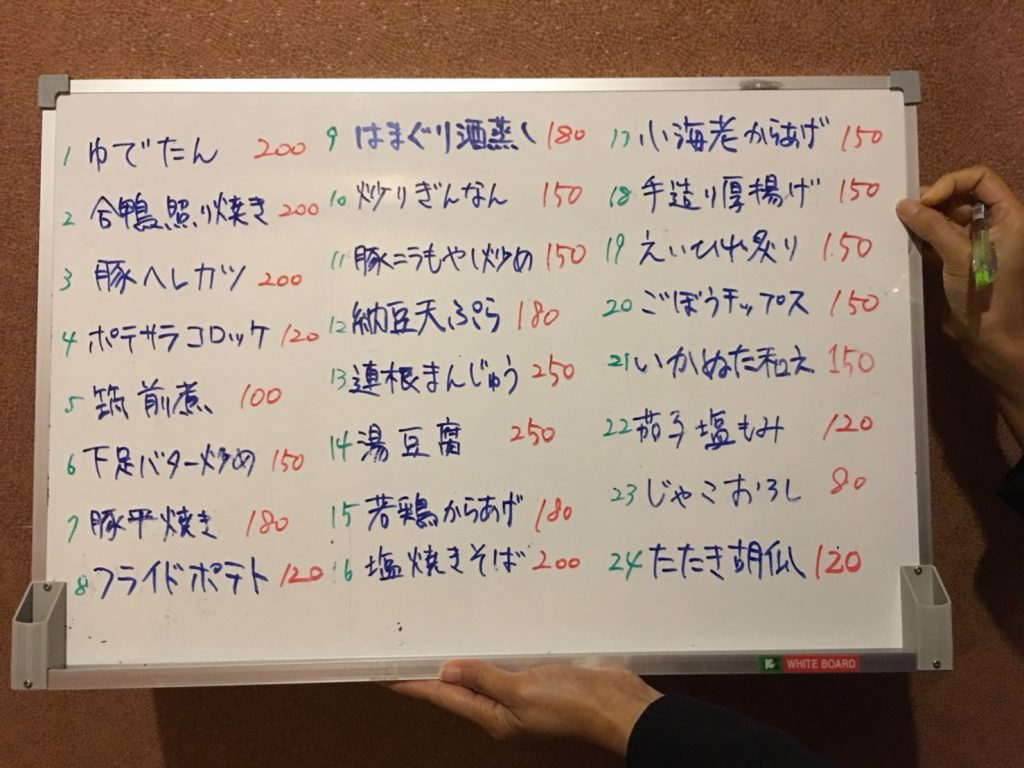 1 ゆでたん 200
2 合鴨照り焼き 200
3 豚ヘレカツ 200
4 ポテサラコロッケ 120
5 筑前煮 100
6 下足バター炒め 150
7 豚平焼き 180
8 フライドポテト 120
9 はまぐり酒蒸し 180
10 炒りぎんなん 150
11 豚ニラもやし炒め 150
12 納豆天ぷら 180
13 連根まんじゅう 250
14 湯豆腐 250
15 若鶏からあげ 180
16 塩焼きそば 200
17 小海老からあげ 150
18 手造り厚揚げ 150
19 えいひれ炙り 150
20 ごぼうチップス 150
21 いかぬた和え 150
22 茄子塩もみ 120
23 じゃこおろし 80
24 たたき胡瓜 120
WHITE BOARD